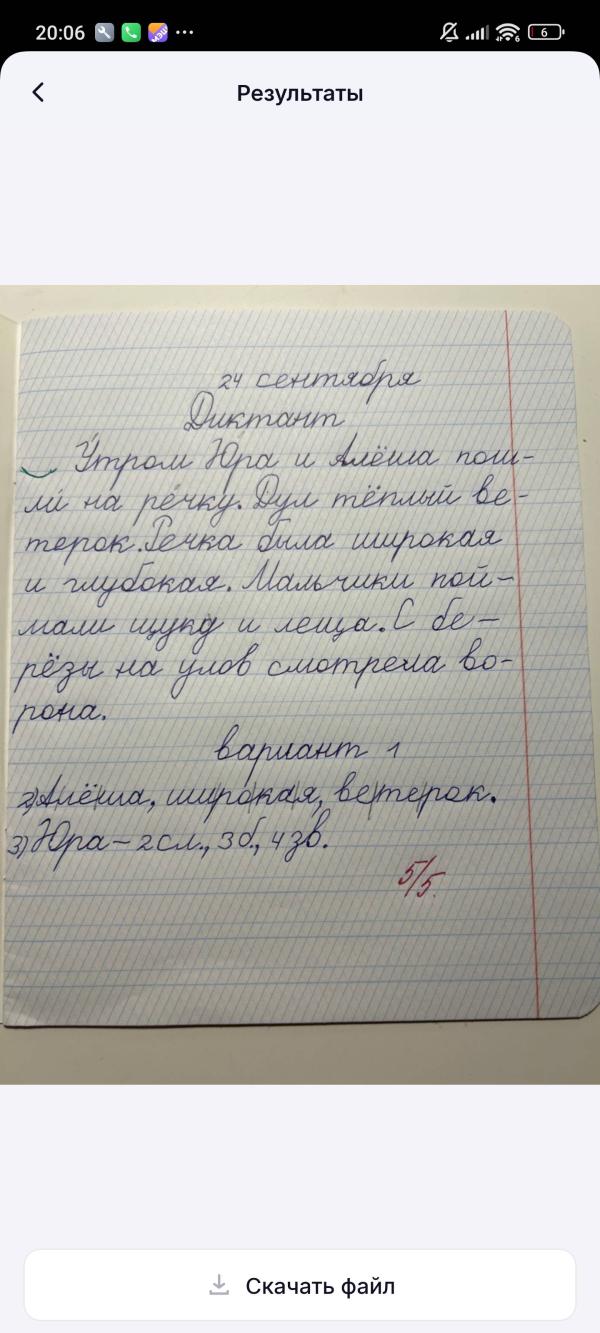 20:06
6
Результаты
24 сентября
Диктант
Утром Юра и Алёша пош-
ли на речку. Дул тёплый ве-
терок. Речка была широкая
и глубокая. Мальчики пой-
мали щуку и леща. С бе-
рёзы на улов смотрела во-
рона.
вариант 1
2) Алёша, широкая, ве|терок.
3) Юра – 2 сл., 3 б., 4 зв.
5/5.
Скачать файл